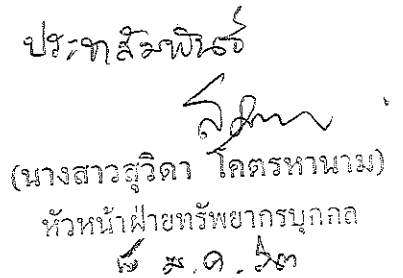 ประชาสัมพันธ์
(นางสาวสุวิดา โคตรหานาม)
หัวหน้าฝ่ายทรัพยากรบุคคล